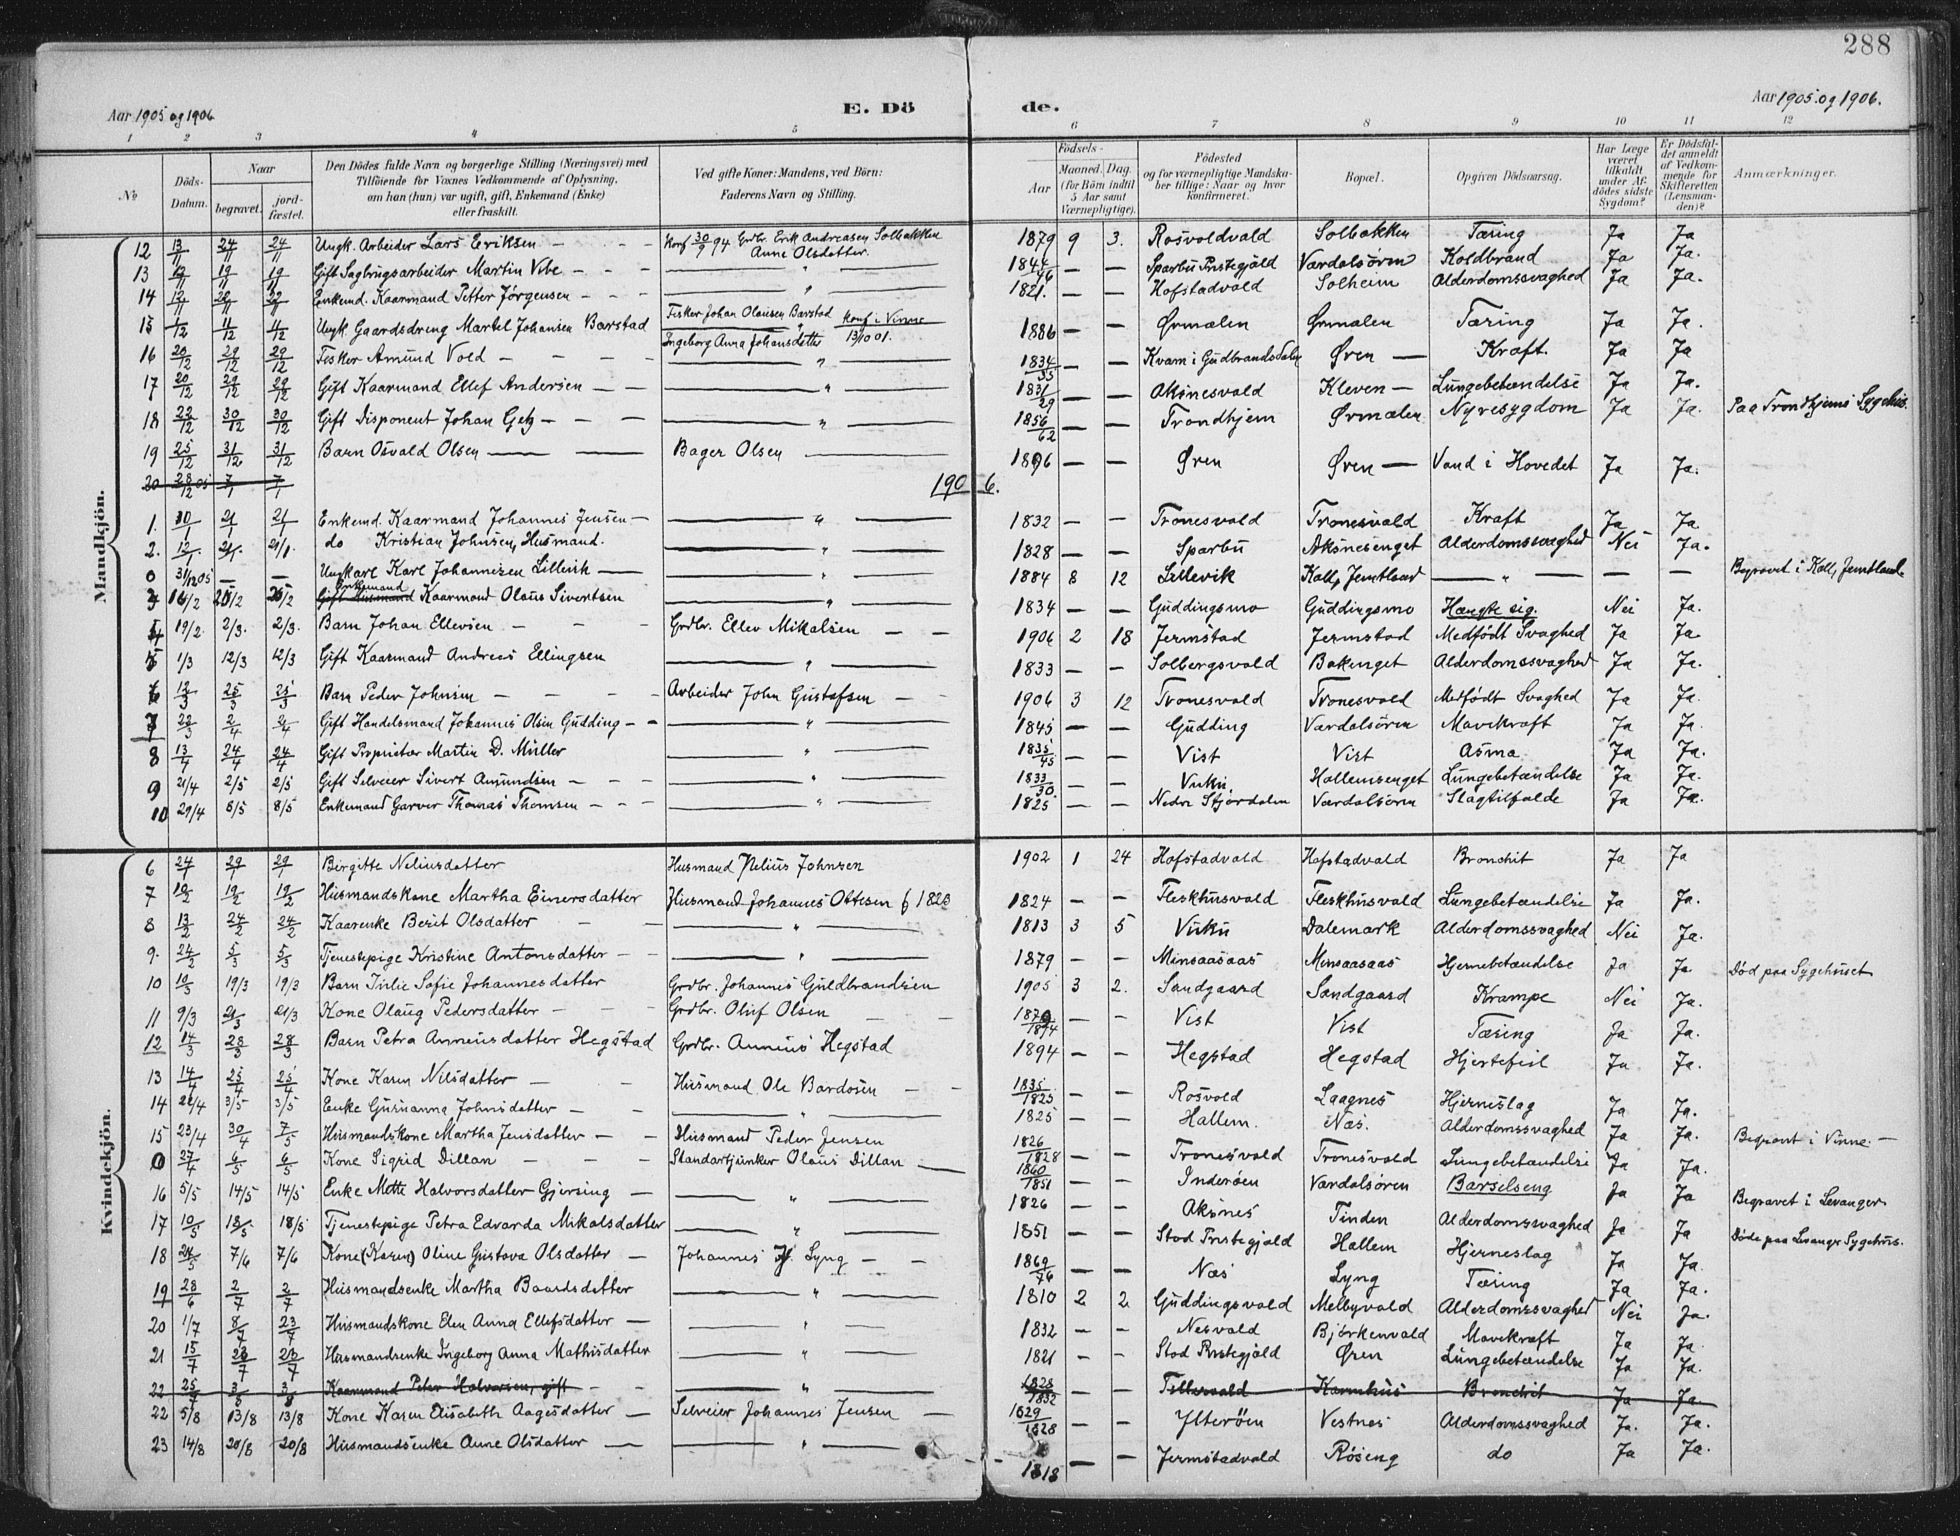 288
Aar 1905 og 1906
E. Dö
de.
Aar 1905 og 1906.
1 2 3 4 5 6 7 8 9 10 11 12
No
Döds-Datum.
Naar
begravet.
jord-fæstet.
Den Dödes fulde Navn og borgerlige Stilling (Næringsvei) med
Tilföiende for Voxnes Vedkommende af Oplysning,
om han (hun) var ugift, gift, Enkemand (Enke)
eller fraskilt.
Ved gifte Koner: Mandens, ved Börn:
Faderens Navn og Stilling.
Födsels-
Aar
Maaned. Dag.
(for Börn indtil
5 Aar samt
Værnepligtige).
Födested
og for værnepligtige Mandska-
ber tillige: Naar og hvor
konfirmeret.
Bopæl.
Opgiven Dödsaarsag.
Har Læge
været
tilkaldt
under Af-
dödes sidste
Sygdom?
Er Dödsfal-
det anmeldt
af Vedkom-
mende for
Skifteretten
(Lensman-
den)?
Anmærkninger.
Mandkjön.
12 13/11 24/11 24/11 Ungk. Arbeider Lars Eriksen — Konf 30/9 94 Grdbr. Erik Andreasen Solbakken Anne Olsdatter. 1879 9 3. Rosvoldvald Solbakken Tæring Ja Ja
13 19/11 19/11 Gift Sagbrugsarbeider Martin Vibe — " 1844/46 — — Sparbu Prstegjæld Værdalsören Koldbrand Ja Ja.
14 12/11 Enkemd. Kaarmand Petter Jörgensen — " 1821. — — Hofstadvald Solheim Alderdomssvaghed Ja Ja.
15 1/12 11/12 11/12 Ungk. Gaardsdreng Martel Johansen Barstad Fisker Johan Olausen Barstad Konf i Vinne Ingeborg Anna Johansdatter 13/10 01. 1886 — — Örmælen Örmælen Tæring Ja Ja.
16 20/12 29/12 29/12 Fisker Amund Vold — " 1834/35 — — Kvam i Gudbrandsdalen Ören — Kræft. Ja Ja
17 20/12 29/12 29/12 Gift Kaarmand Ellef Andersen — " 1831/29 — — Aksnesvald Kleven — Lungebetændelse Ja Ja.
18 22/12 30/12 30/12 Gift Disponent Johan Getz — " 1856/62 — — Trondhjem Örmælen Nyresygdom Ja Ja. Paa Trondhjems Sygehus.
19 25/12 31/12 31/12 Barn Osvald Olsen — Bager Olsen — 1896 — — Ören Ören — Vand i Hovedet Ja Ja.
20 28/12 05 7/1 7/1
1906.
1. 21/1 21/1 Enkemd. Kaarmand Johannes Jensen — " 1832 — — Tronesvald Tronesvald Kræft Ja Ja
2. 12/1 21/1. 21/1. do Kristian Johnsen, Husmand. " 1828 — — Sparbu Aksnesenget Alderdomssvaghed Nei Ja.
0 31/12 05 — — Ungkarl Karl Johannesen Lillevik — " 1884 8 12 Lillevik Kall, Jemtland — " — — — Begravet i Kall, Jemtland
3 Enkemand Gift Husmand Kaarmand Olaus Sivertsen " 1834 — — Guddingsmo Guddingsmo Hængte sig. Nei Ja.
4 19/2. 2/3. 2/3. Barn Johan Ellevsen — Grdbr. Ellev Mikalsen — — 1906 2 18 Jermstad Jermstad Medfödt Svaghed Ja Ja
5 1/3 12/3 12/3 Gift Kaarmand Andreas Ellingsen " 1833 — — Solbergsvald Bakenget Alderdomssvaghed Ja Ja.
6 25/3 25/3 Barn Peder Johnsen — Arbeider John Gustafsen — — 1906 3 12 Tronesvald Tronesvold Medfödt Svaghed Ja Ja.
7 22/3 2/4 2/4 Gift Handelsmand Johannes Olsen Gudding — " 1845 — — Gudding Værdalsören Mavekræft Ja Ja.
8 13/4 24/4 24/4 Gift Proprietær Martin D. Müller " 1835/45 — — Vist Vist Asma Ja Ja.
9 21/4 2/5 2/5 Gift Selveier Sivert Amundsen — " 1833/30. — — Vuku Hallemsenget Lungebetændelse Ja Ja.
10 29/4 8/5 8/5 Enkemand Garver Thomas Thomsen — " 1825 — — Nedre Stjördalen Værdalsören Slagtilfælde Ja Ja.
Kvindekjön.
6 24/1 29/1 29/1 Birgitte Neliusdatter Husmand Nelius Johnsen 1902 1 24 Hofstadvald Hofstadvald Bronchit Ja Ja
7 10/2 19/2 19/2 Husmandskone Martha Einersdatter Husmand Johannes Ottesen f 1823 1824 — — Fleskhusvald Fleskhusvald Lungebetændelse Ja Ja.
8 13/2 24/2 24/2 Kaarenke Berit Olsdatter — " 1813 3 5 Vuku Dalemark Alderdomssvaghed Nei Ja.
9. 24/2 5/3 5/3 Tjenestepige Kristine Antonsdatter — " 1879 — — Minsaasaas Minsaasaas Hjernebetændelse Ja Ja Död paa Sygehuset
10 10/3 19/3 19/3 Barn Julie Sofie Johannesdatter Grdbr. Johannes Guldbrandsen 1905 3 2. Sandgaard Sandgaard Krampe Nei Ja.
11 9/3 21/3 21/3 Kone Olaug Pedersdatter — Grdbr. Oluf Olsen — — 1870/1874 — — Vist Vist Tæring Ja Ja.
12 14/3 28/3 28/3 Barn Petra Anneusdatter Hegstad Grdbr. Anneus Hegstad 1894 — — Hegstad Hegstad Hjertefeil Ja Ja.
13 14/4 25/4 25/4 Kone Karen Nilsdatter — Husmand Ole Bardosen — — 1835/1825 — — Rosvold Laagnes Hjerneslag
14 3/5 3/5 Enke Gurianna Johnsdatter — " 1825 — — Hallem. Næs. Alderdomssvaghed Ja Ja.
15 23/4 30/4 7/5 Husmandskone Martha Jensdatter — Husmand Peder Jensen 1826/1828 — — Tronesvald Tronesvald Lungebetændelse Ja Ja. Begravet i Vinne. —
0 27/4 6/5 6/5 Kone Sigrid Dillan — Standartjunker Olaus Dillan — 1860/1851 — — Inderöen Værdalsören Barselseng Ja Ja.
16 5/5 14/5 14/5 Enke Mette Halvorsdatter Gjersing — " 1826 — — Aksnes Tinden Alderdomssvaghed Ja Ja Begravet i Levanger
17 10/5 18/5 18/5 Tjenestepige Petra Edvarda Mikalsdatter " 1851 Stod Prstegjæld Hallem Hjerneslag Ja Ja Döde paa Levanger Sygehus.
18 7/6 7/6 Kone (Karen) Oline Gustava Olsdatter — Johannes Lyng — — 1869/76 — — Næs Lyng Tæring Ja Ja.
19 28/6 2/7 2/7 Husmandsenke Martha Baardsdatter " 1810 2 2 Guddingsvald Melbyvald Alderdomssvaghed Ja Ja.
20 1/7 8/7 23/7 Husmandskone Elen Anna Ellefsdatter — " 1832 — — Nesvald Björkenvald Mavekræft Nei Ja.
21 15/7 23/7 23/7 Husmandsenke Ingeborg Anna Mathisdatter " 1821 — — Stod Prstegjæld Ören Lungebetændelse Ja Ja.
22 25/7 Kaarmand Peter Halvorsen, gift — " 1828/1832 Karmhus Bronchit Ja Ja
22 5/8 13/8 13/8 Kone Karen Elisabeth Aagesdatter — Selveier Johannes Jensen — 1829/1828 — — Ytteröen Vestnes Alderdomssvaghed Ja. Ja.
23 14/8 20/8 20/8 Husmandsenke Anne Olsdatter — " 1818 — — Jermstadvald Röseng do Ja Ja.